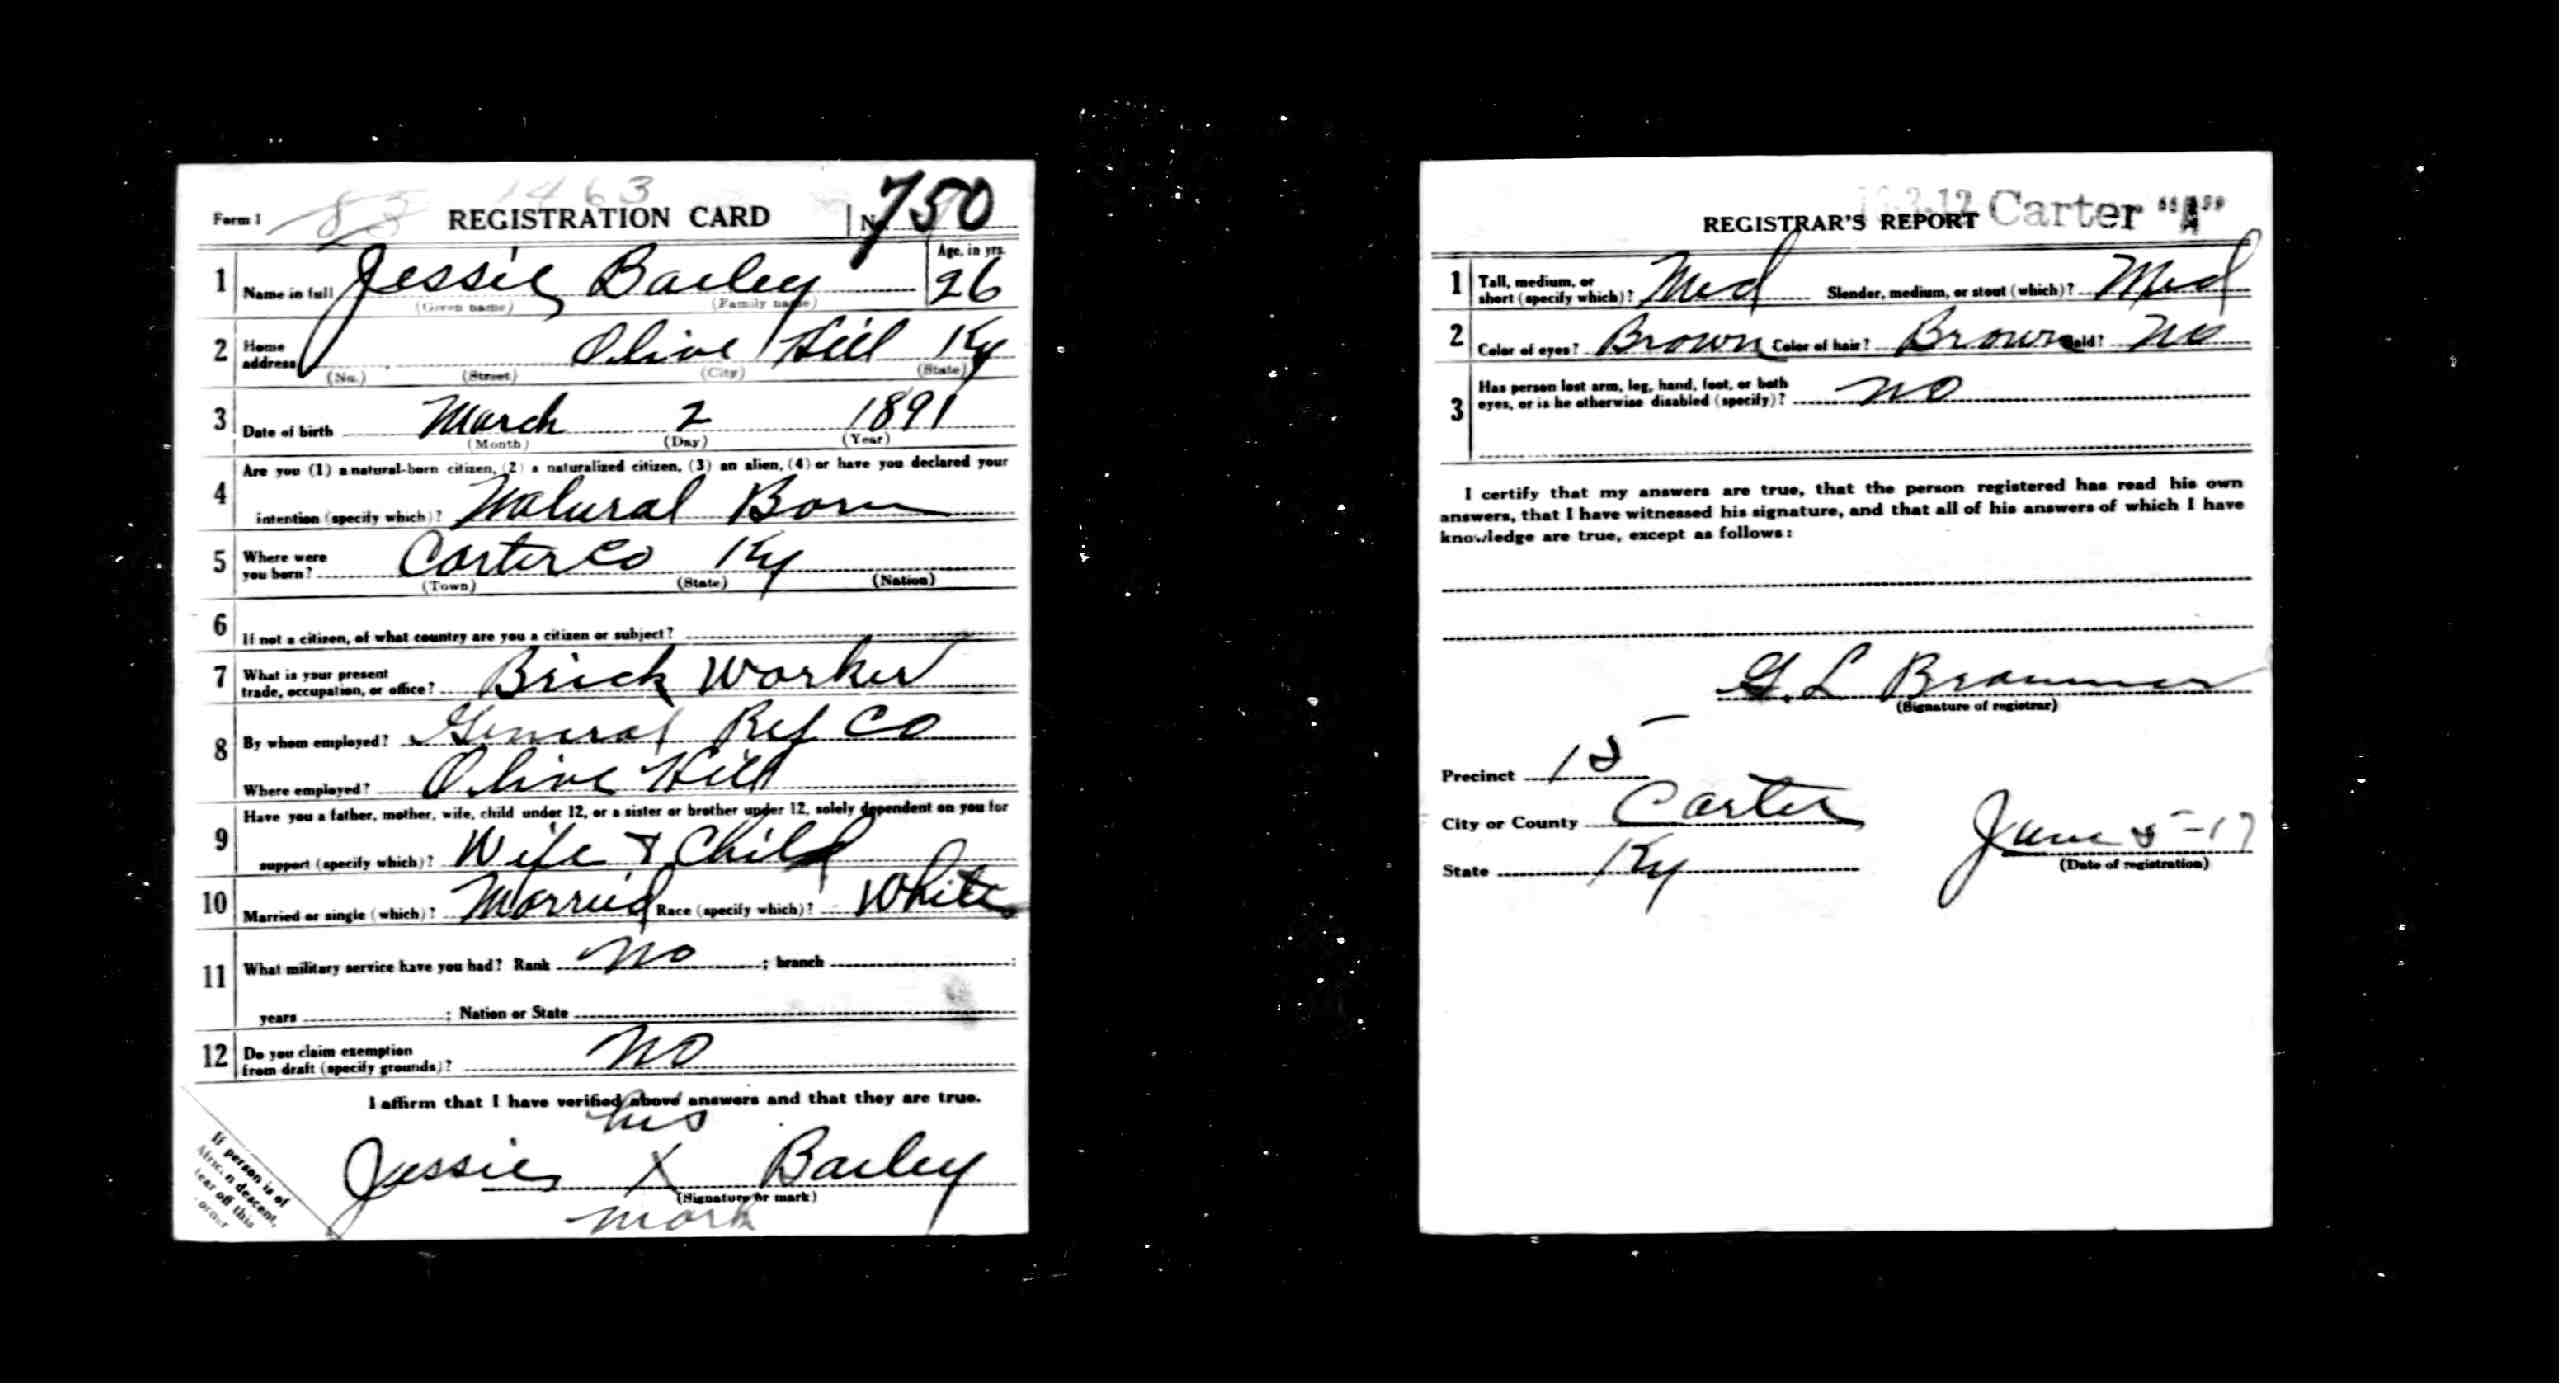 1463
Form 1 83 REGISTRATION CARD No. 750
1 Name in full Jessie Bailey Age, in yrs. 26
(Given name) (Family name)
2 Home address Olive Hill Ky
(No.) (Street) (City) (State)
3 Date of birth March 2 1891
(Month) (Day) (Year)
4 Are you (1) a natural-born citizen, (2) a naturalized citizen, (3) an alien, (4) or have you declared your
intention (specify which)? Natural Born
5 Where were you born? Carter Co Ky
(Town) (State) (Nation)
6 If not a citizen, of what country are you a citizen or subject?
7 What is your present trade, occupation, or office? Brick Worker
8 By whom employed? General Ref Co
Where employed? Olive Hill
9 Have you a father, mother, wife, child under 12, or a sister or brother under 12, solely dependent on you for
support (specify which)? Wife & Child
10 Married or single (which)? Married Race (specify which)? White
11 What military service have you had? Rank no ; branch ;
years ; Nation or State
12 Do you claim exemption from draft (specify grounds)? no
I affirm that I have verified above answers and that they are true.
his
Jessie X Bailey
(Signature or mark)
mark
If person is of
African descent,
tear off this
corner
REGISTRAR'S REPORT Carter "A"
1 Tall, medium, or short (specify which)? Med Slender, medium, or stout (which)? Med
2 Color of eyes? Brown Color of hair? Brown Bald? no
3 Has person lost arm, leg, hand, foot, or both
eyes, or is he otherwise disabled (specify)? no
I certify that my answers are true, that the person registered has read his own
answers, that I have witnessed his signature, and that all of his answers of which I have
knowledge are true, except as follows:
G. L Brammer
(Signature of registrar)
Precinct 15
City or County Carter
State Ky
June 5-17
(Date of registration)